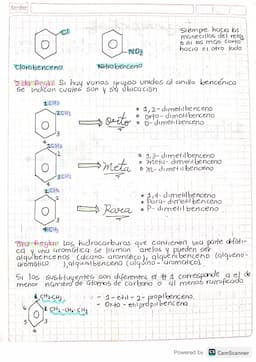 Cl
NO₂
Clorobenceno
Nitrobenceno
Siempre hacia las
manecillas del reloj
hacia el otro lado
2da Regla: Si hay varios grupos unidos al anillo bencénico
se indican cuales son y su ubicación
1 CH₃
2 CH₃
3
4
⇒ orto
• 1,2-dimetilbenceno
• orto-dimetilbenceno
• o-dimetilbenceno
1 CH₃
2
3 CH₃
⇒ Meta
• 1,3-dimetilbenceno
• Meta-dimetilbenceno
• m-dimetilbenceno
1 CH₃
2
3
4 CH₃
⇒ Para
• 1,4-dimetilbenceno
• Para-dimetilbenceno
• P-dimetilbenceno
3ra Regla: Los hidrocarburos que contienen una parte alifáti-
ca y una aromática se llaman y pueden ser
alquilbencenos (alcano-aromático), alquenilbenceno (alqueno-
aromático), alquinilbenceno (alquino-aromático).
Si los sustituyentos son diferentes el # 1 corresponde a el de
menor número de átomos de carbono o al menos ramificado
1 CH₂CH₃
2 CH₂-CH₂-CH₃
- 1-etil-2-propilbenceno.
- Orto-etilpropilbenceno
Powered by CS CamScanner